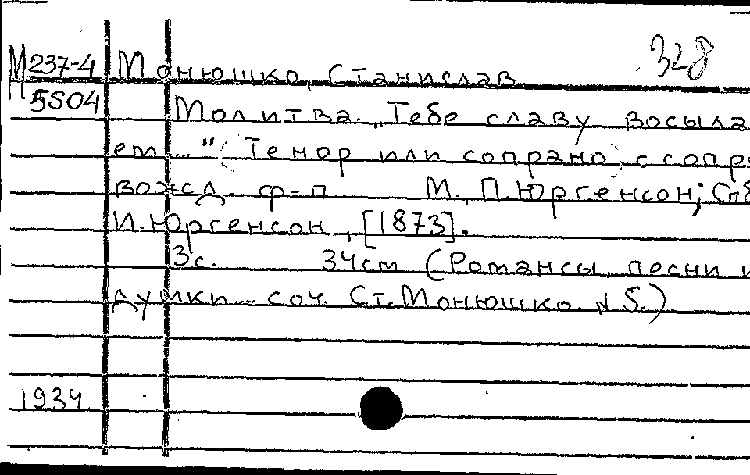 328
М 237-4 Монюшко, Станислав
5504 Молитва „Тебе славу восыла
ем..." (Тенор или сопрано) с сопр
вожд. ф-п М. П. Юргенсон; СПб
И. Юргенсон, [1873].
3с. 34см (Романсы песни и
думки соч. Ст. Монюшко N 5.)
1934